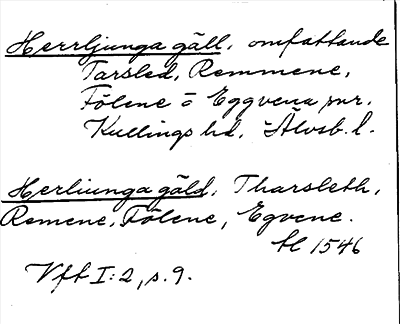 Herrljunga gäll, omfattande
Tarsled, Remmene,
Fölene o Eggvena snr.
Kullings hd, Älvsb. l.
Herliunga gäld, Tharsleth,
Remene, Fölene, Egvene.
1546
Vft I:2, s. 9.